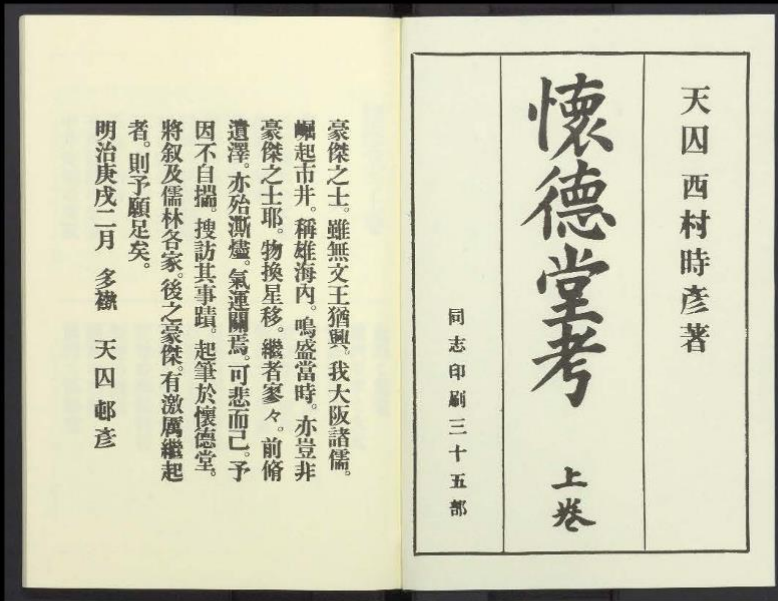 天囚 西村時彦著
懷德堂考 上巻
同志印刷三十五部
豪傑之士。雖無文王猶興。我大阪諸儒。
崛起市井。稱雄海內。鳴盛當時。亦豈非
豪傑之士耶。物換星移。繼者寥々。前脩
遺澤。亦殆澌燼。氣運關焉。可悲而已。予
因不自揣。搜訪其事蹟。起筆於懷德堂。
將叙及儒林各家。後之豪傑。有激厲繼起
者。則予願足矣。
明治庚戌二月 多襼 天囚 邨彥